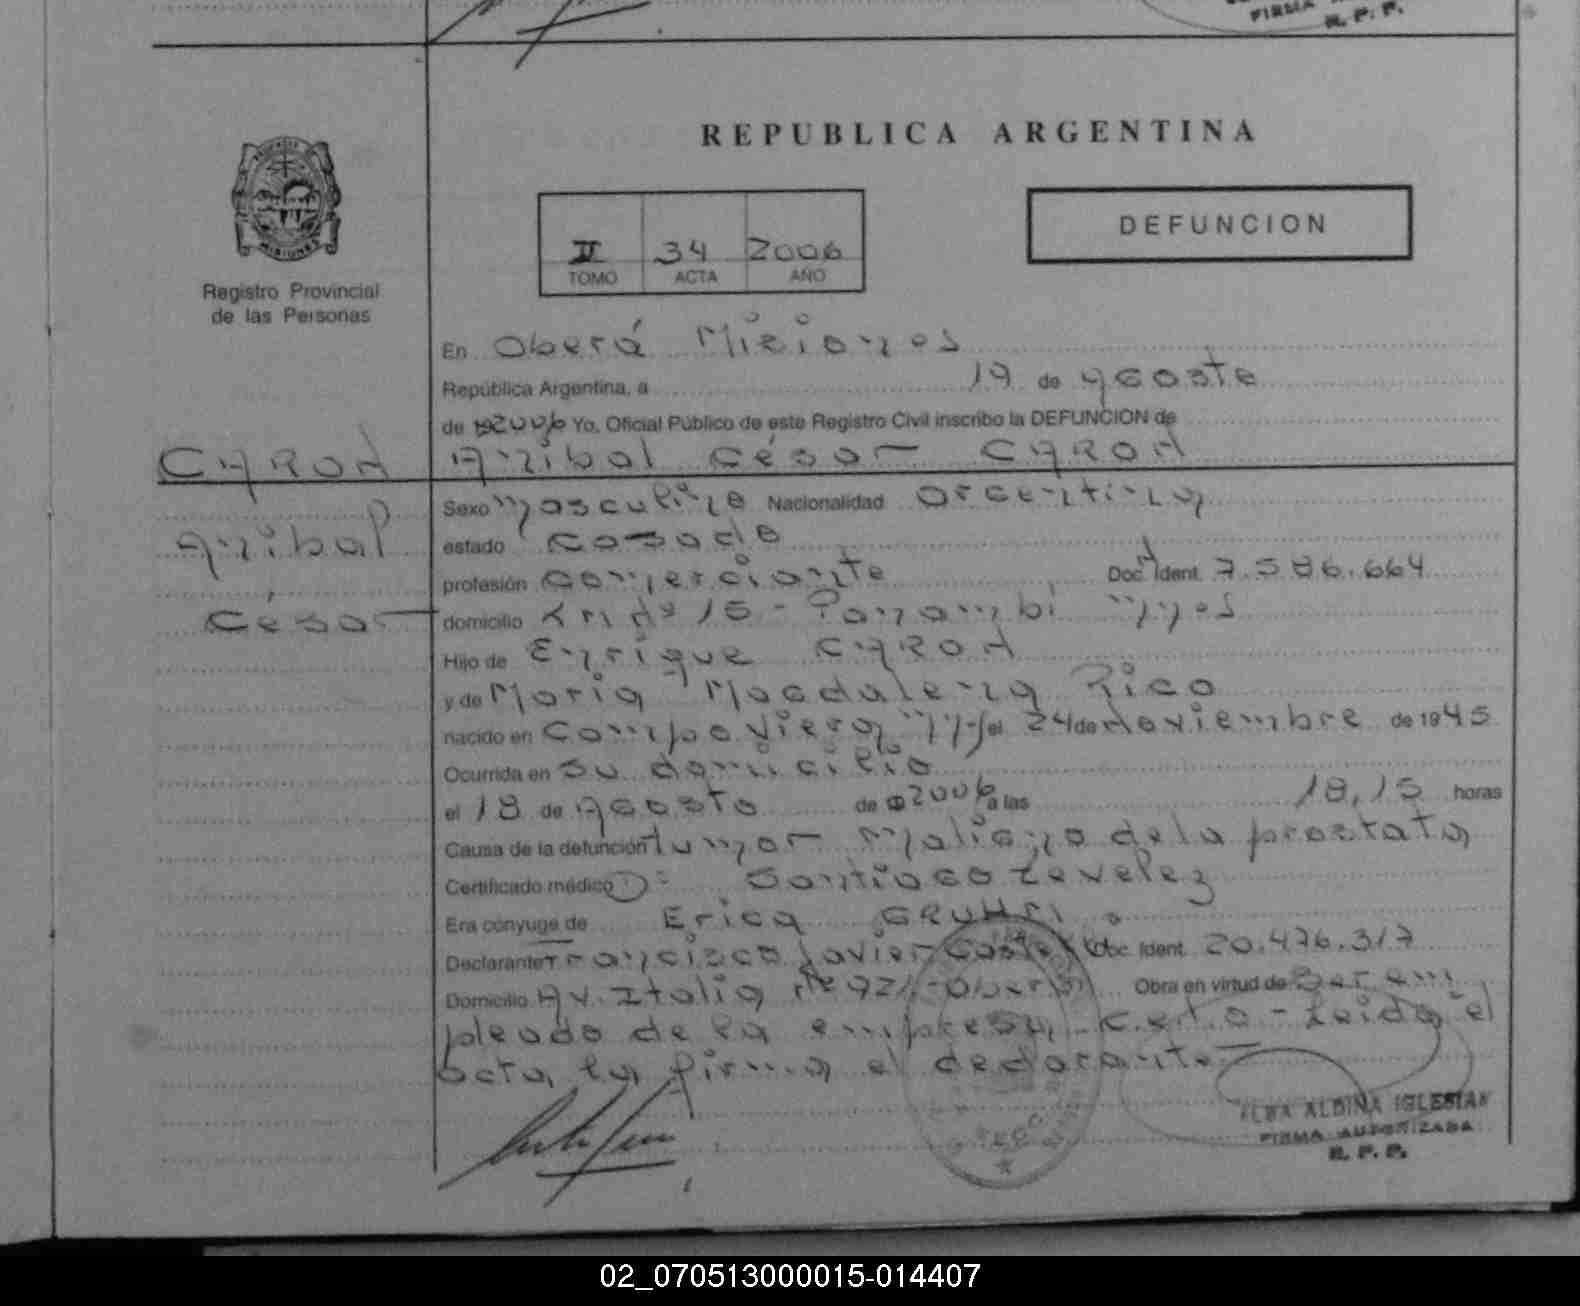 FIRMA
R. P. P.
REPUBLICA ARGENTINA
DEFUNCION
II 34 2006
TOMO ACTA AÑO
MISIONES
Registro Provincial
de las Personas
En Oberá Misiones
República Argentina, a 19 de Agosto
de 2006 Yo, Oficial Público de este Registro Civil inscribo la DEFUNCION de
Anibal César
Anibal
César
Sexo masculino Nacionalidad Argentina
estado casado
profesión comerciante Doc. Ident. 7.586.664
domicilio Km nº 15 - Panambi Mnes
Hijo de Enrique
y de Maria Magdalena Rico
nacido en Campo Viera el 24 de Noviembre de 1945
Ocurrida en su domicilio
el 18 de Agosto de 2006 a las 18,15 horas
Causa de la defunción tumor maligno de la prostata
Certificado médico D: Santiago
Era cónyuge de Erica
Declarante Francisco Javier Doc. Ident. 20.476.317
Domicilio Av. Italia Nº - Oberá Obra en virtud de Ser em
pleado de la empresa - Leida el
acta, la firma el declarante
ALBA ALBINA IGLESIAS
FIRMA AUTORIZADA
R. P. P.
02_070513000015-014407